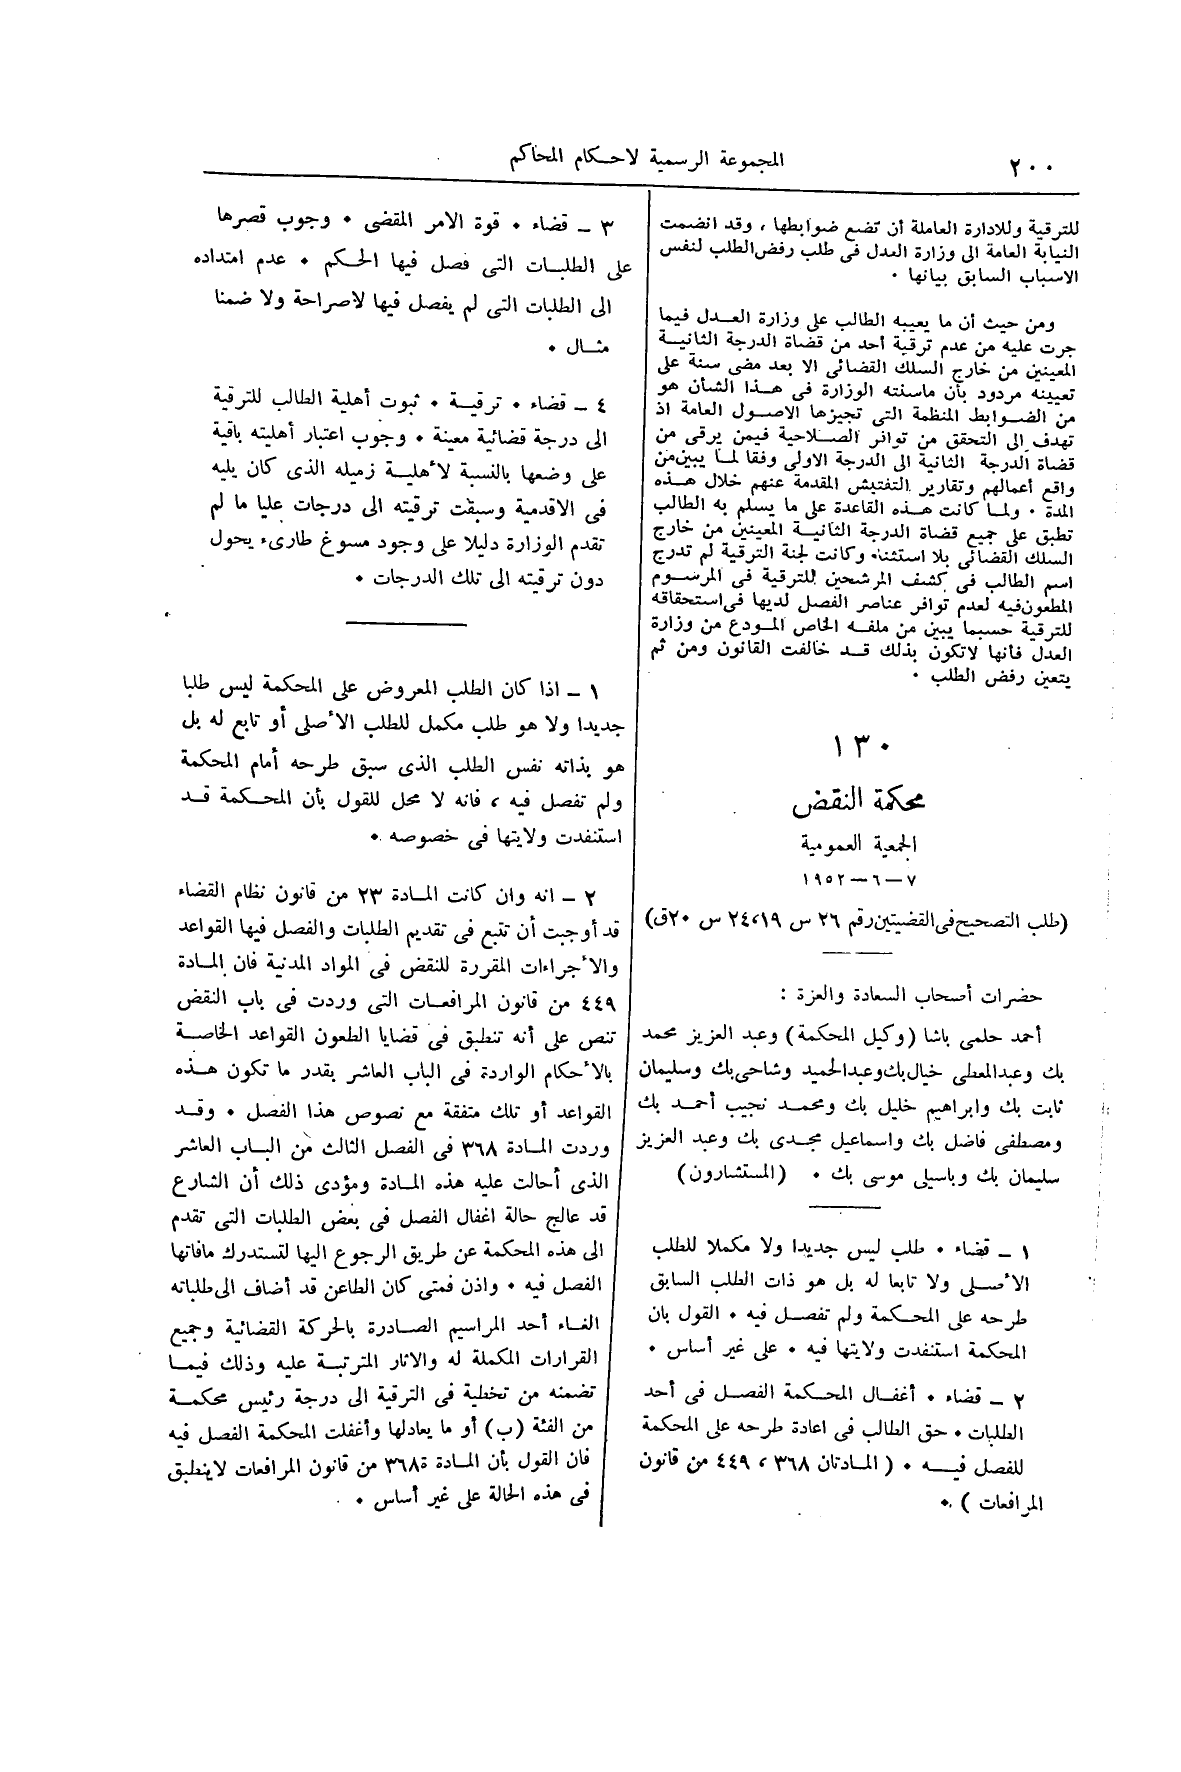 ٢٠٠
المجموعة الرسمية لاحكام المحاكم
للترقية وللادارة العاملة أن تضع ضوابطها ، وقد انضمت
النيابة العامة الى وزارة العدل فى طلب رفض الطلب لنفس
الاسباب السابق بيانها ٠
ومن حيث أن ما يعيبه الطالب على وزارة العدل فيما
جرت عليه من عدم ترقية أحد من قضاة الدرجة الثانية
المعينين من خارج السلك القضائى الا بعد مضى سنة على
تعيينه مردود بأن ماسنته الوزارة فى هذا الشأن هو
من الضوابط المنظمة التى تجيزها الاصول العامة اذ
تهدف الى التحقق من توافر الصلاحية فيمن يرقى من
قضاة الدرجة الثانية الى الدرجة الاولى وفقا لما يبين من
واقع أعمالهم وتقارير التفتيش المقدمة عنهم خلال هذه
المدة ٠ ولما كانت هذه القاعدة على ما يسلم به الطالب
تطبق على جميع قضاة الدرجة الثانية المعينين من خارج
السلك القضائى بلا استثناء وكانت لجنة الترقية لم تدرج
اسم الطالب فى كشف المرشحين للترقية فى المرسوم
المطعون فيه لعدم توافر عناصر الفصل لديها فى استحقاقه
للترقية حسبما يبين من ملفه الخاص المودع من وزارة
العدل فأنها لاتكون بذلك قد خالفت القانون ومن ثم
يتعين رفض الطلب ٠
١٣٠
محكمة النقض
الجمعية العمومية
٧ – ٦ – ١٩٥٢
(طلب التصحيح فى القضيتين رقم ٢٦ س ١٩، ٢٤ س ٢٠ق)
حضرات أصحاب السعادة والعزة :
أحمد حلمى باشا (وكيل المحكمة) وعبد العزيز محمد
بك وعبد المعطى خيال بك وعبد الحميد وشاحى بك وسليمان
ثابت بك وابراهيم خليل بك ومحمد نجيب أحمد بك
ومصطفى فاضل بك واسماعيل مجدى بك وعبد العزيز
سليمان بك وباسيلى موسى بك ٠ (المستشارون)
١ – قضاء ٠ طلب ليس جديدا ولا مكملا للطلب
الأصلى ولا تابعا له بل هو ذات الطلب السابق
طرحه على المحكمة ولم تفصل فيه ٠ القول بان
المحكمة استنفدت ولايتها فيه ٠ على غير أساس ٠
٢ – قضاء ٠ أغفال المحكمة الفصل فى أحد
الطلبات ٠ حق الطالب فى اعادة طرحه على المحكمة
للفصل فيه ٠ ( المادتان ٣٦٨ ، ٤٤٩ من قانون
المرافعات ) ٠
٣ – قضاء ٠ قوة الامر المقضى ٠ وجوب قصرها
على الطلبات التى فصل فيها الحكم ٠ عدم امتداده
الى الطلبات التى لم يفصل فيها لاصراحة ولا ضمنا
مثال ٠
٤ – قضاء ٠ ترقية ٠ ثبوت أهلية الطالب للترقية
الى درجة قضائية معينة ٠ وجوب اعتبار أهليته باقية
على وضعها بالنسبة لأهلية زميله الذى كان يليه
فى الاقدمية وسبقت ترقيته الى درجات عليا ما لم
تقدم الوزارة دليلا على وجود مسوغ طارىء يحول
دون ترقيته الى تلك الدرجات ٠
١ – اذا كان الطلب المعروض على المحكمة ليس طلبا
جديدا ولا هو طلب مكمل للطلب الأصلى أو تابع له بل
هو بذاته نفس الطلب الذى سبق طرحه أمام المحكمة
ولم تفصل فيه ، فانه لا محل للقول بأن المحكمة قد
استنفدت ولايتها فى خصوصه ٠
٢ – انه وان كانت المادة ٢٣ من قانون نظام القضاء
قد أوجبت أن تتبع فى تقديم الطلبات والفصل فيها القواعد
والأجراءات المقررة للنقض فى المواد المدنية فان المادة
٤٤٩ من قانون المرافعات التى وردت فى باب النقض
تنص على أنه تنطبق فى قضايا الطعون القواعد الخاصة
بالأحكام الواردة فى الباب العاشر بقدر ما تكون هذه
القواعد أو تلك متفقة مع نصوص هذا الفصل ٠ وقد
وردت المادة ٣٦٨ فى الفصل الثالث من الباب العاشر
الذى أحالت عليه هذه المادة ومؤدى ذلك أن الشارع
قد عالج حالة اغفال الفصل فى بعض الطلبات التى تقدم
الى هذه المحكمة عن طريق الرجوع اليها لتستدرك مافاتها
الفصل فيه ٠ واذن فمتى كان الطاعن قد أضاف الى طلباته
الغاء أحد المراسيم الصادرة بالحركة القضائية وجميع
القرارات المكملة له والاثار المترتبة عليه وذلك فيما
تضمنه من تخطية فى الترقية الى درجة رئيس محكمة
من الفئة (ب) أو ما يعادلها وأغفلت المحكمة الفصل فيه
فان القول بأن المادة ٣٦٨ة من قانون المرافعات لاينطبق
فى هذه الحالة على غير أساس ٠